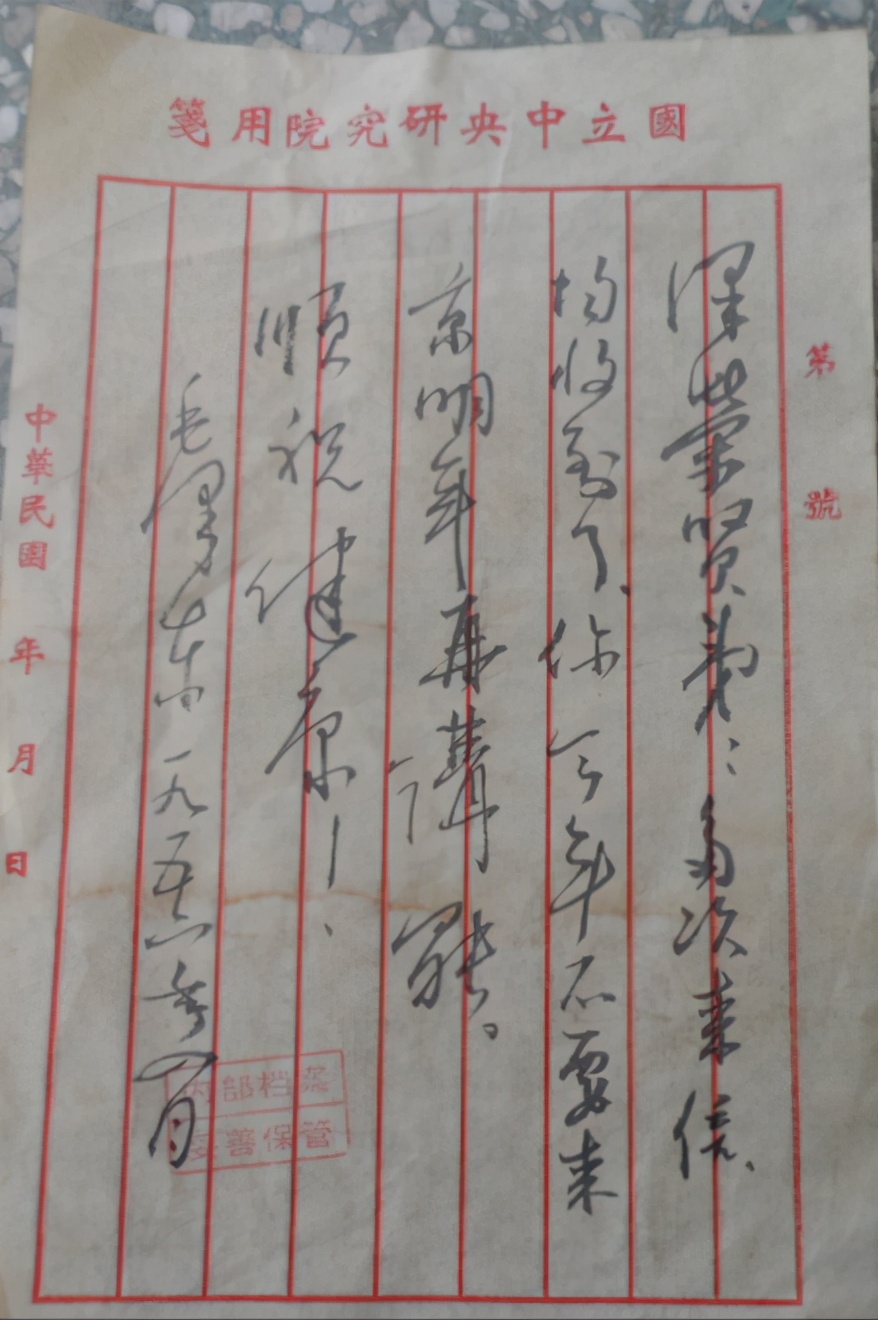 國立中央研究院用箋
第 號
澤榮賢弟：多次来信、
均收到了、你今年不要来
京明年再講罷。
順祝健康！、
毛澤东一九五六年 月
中華民國 年 月 日
内部档案
妥善保管